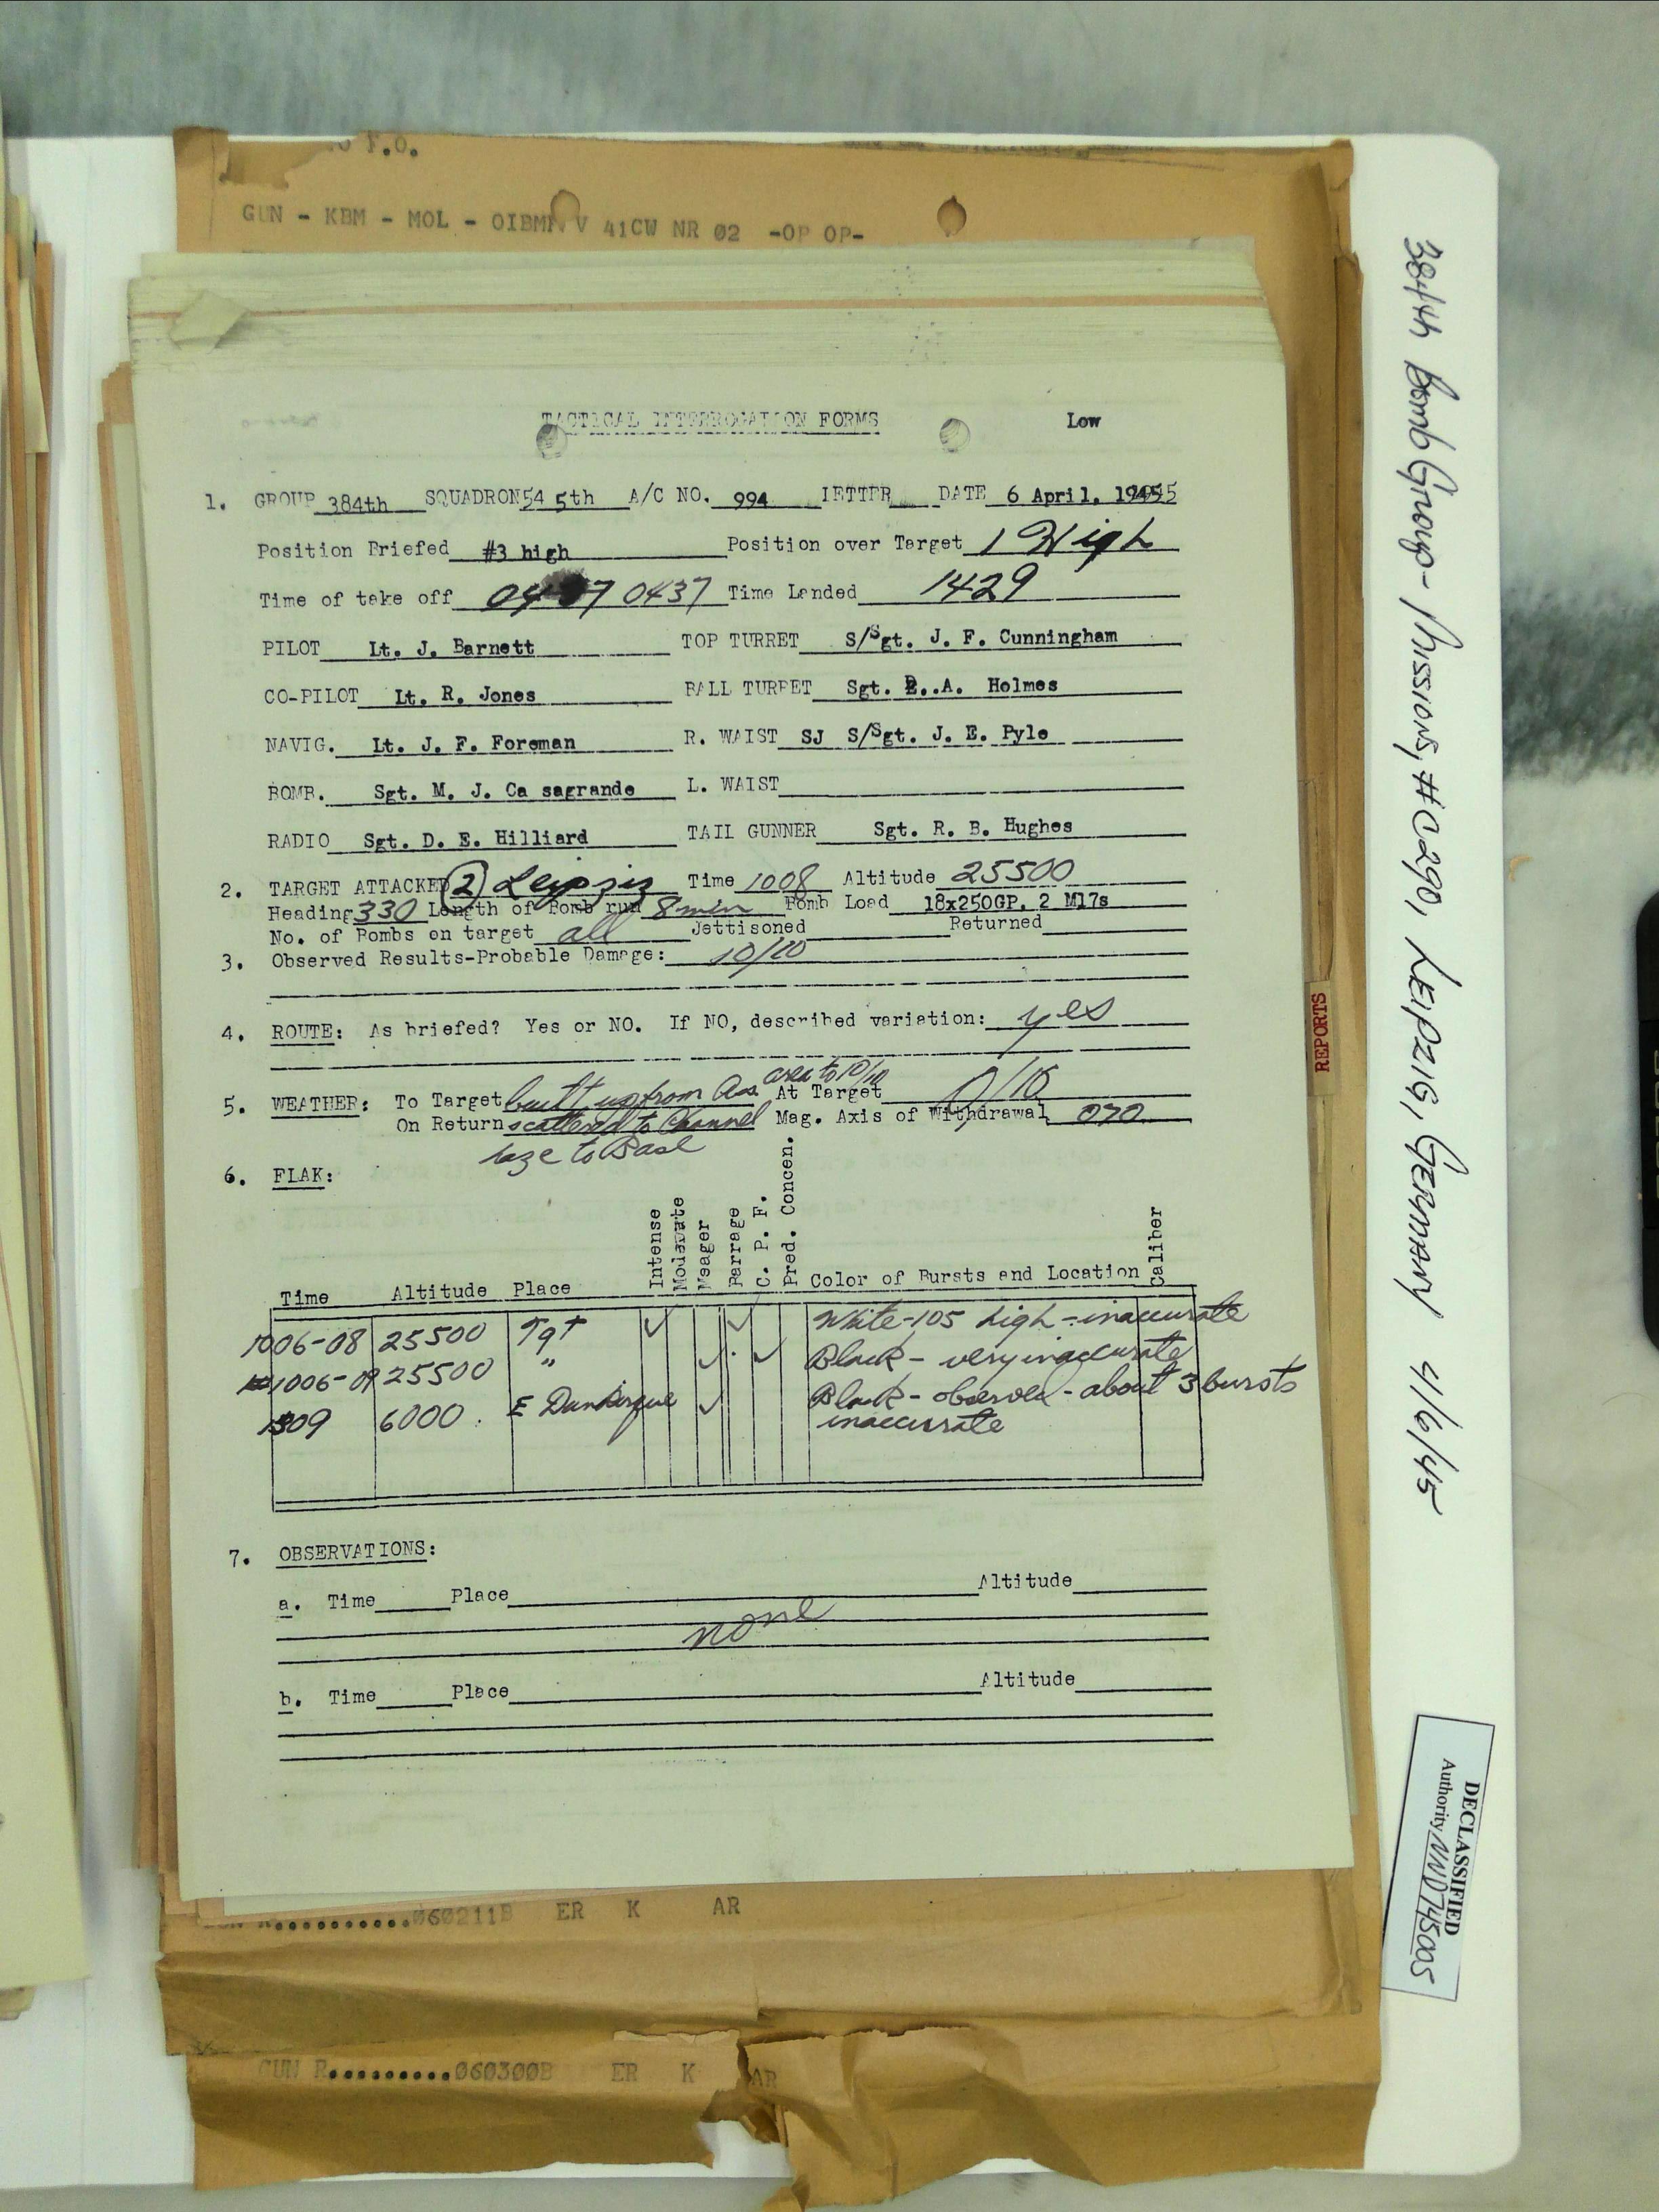 F.O.
GUN - KBM - MOL - OIBMN V 41CW NR 02 -OP OP-
TACTICAL INTERROGATION FORMS Low
1. GROUP 384th SQUADRON 54 5th A/C NO. 994 LETTER DATE 6 April, 1945
Position Briefed #3 high Position over Target 1 High
Time of take off 0437 Time Landed 1429
PILOT Lt. J. Barnett TOP TURRET S/Sgt. J. F. Cunningham
CO-PILOT Lt. R. Jones BALL TURRET Sgt. A. Holmes
NAVIG. Lt. J. F. Foreman R. WAIST SJ S/Sgt. J. E. Pyle
BOMB. Sgt. M. J. Ca sagrande L. WAIST
RADIO Sgt. D. E. Hilliard TAIL GUNNER Sgt. R. B. Hughes
2. TARGET ATTACKED (2) Leipzig Time 1008 Altitude 25500
Heading 330 Length of Bomb run 8 min Bomb Load 18x250GP. 2 M17s
No. of Bombs on target all Jettisoned Returned
3. Observed Results-Probable Damage: 10/10
4. ROUTE: As briefed? Yes or NO. If NO, described variation: yes
area to 10/10
5. WEATHER: To Target built up from Ass. At Target /10
On Return scattered to Channel Mag. Axis of Withdrawal 070
haze to Base
6. FLAK:
Time Altitude Place Intense Moderate Meager Barrage C. P. F. Pred. Concen. Color of Bursts and Location Caliber
1006-08 25500 Tgt ✓ ✓ White-105 high - inaccurate
1006-09 25500 " ✓ ✓ Black - very inaccurate
1309 6000 E Dunkirque ✓ Black - observed - about 3 bursts
inaccurate
7. OBSERVATIONS:
a. Time Place Altitude
none
b. Time Place Altitude
R...........060211B ER K AR
GUN R.........060300B ER K AR
REPORTS
384th Bomb Group - Missions, #C290, LEIPZIG, GERMANY 4/6/45
DECLASSIFIED
Authority NND745005